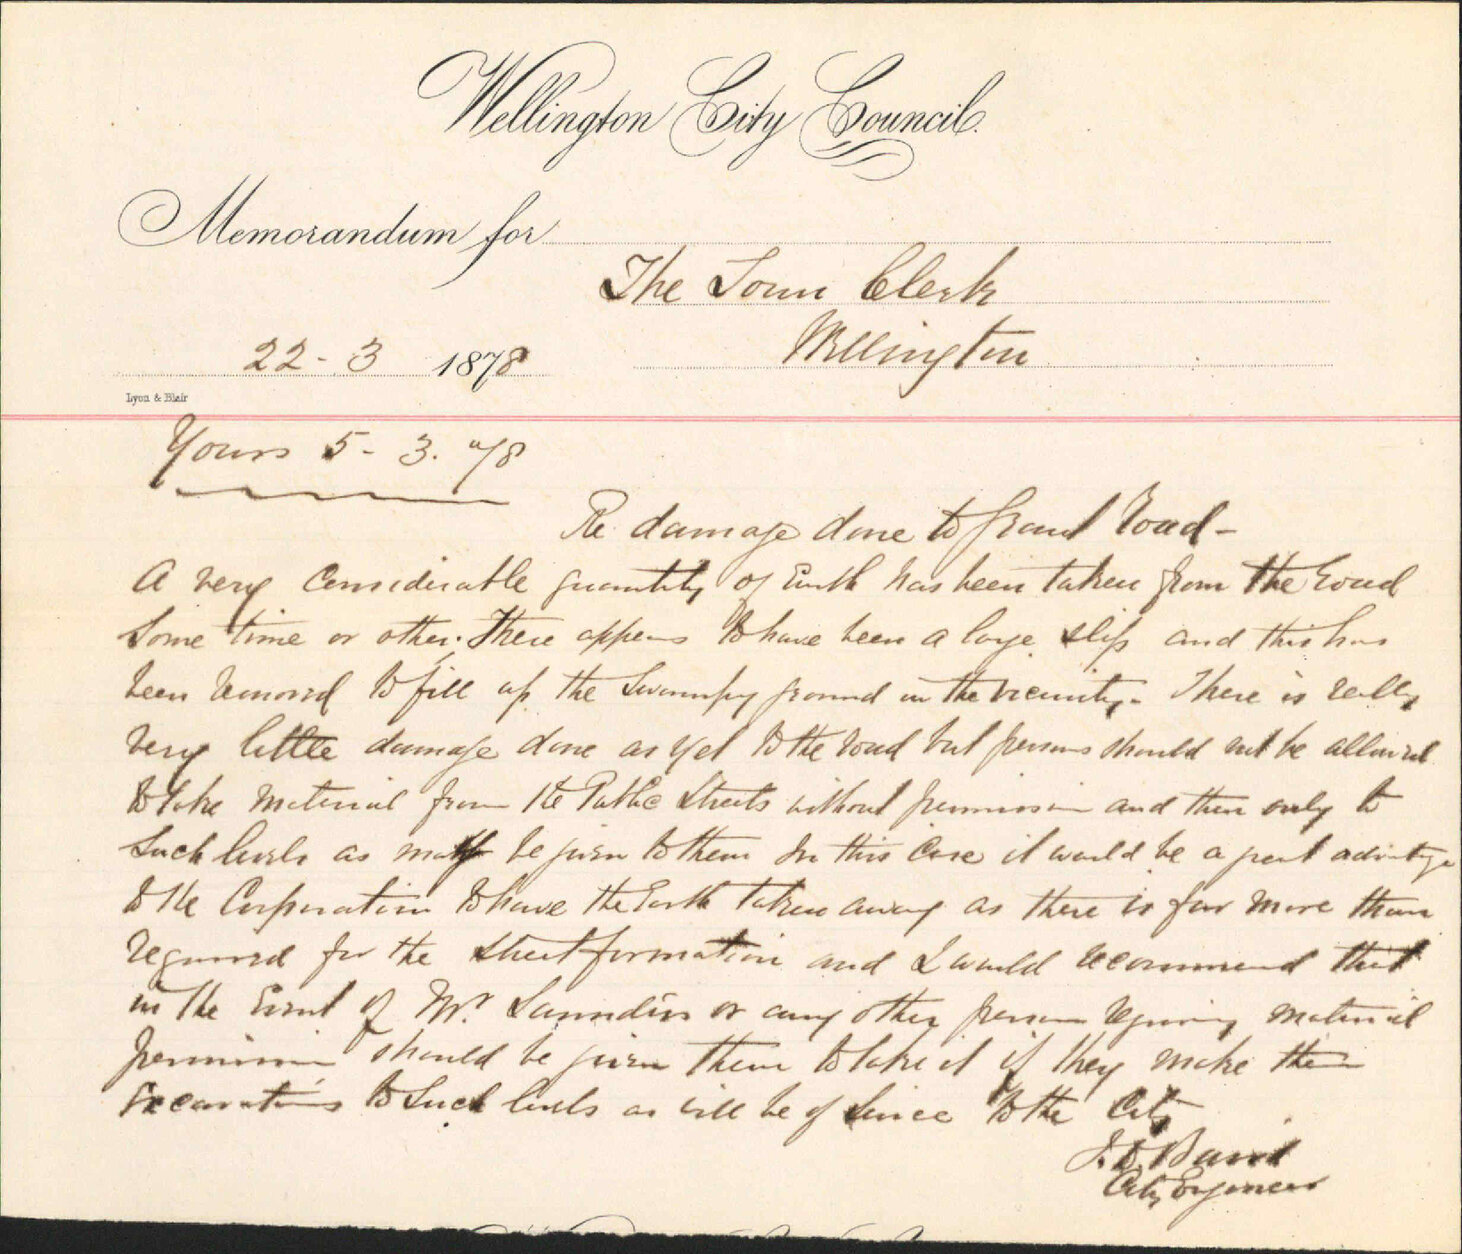 Wellington City Council.
Memorandum for
The Town Clerk
Wellington
22 - 3 1878
Lyon & Blair
Yours 5 - 3. "78
Re damage done to Grant Road -
A very Considerable quantity of Earth has been taken from the Road
Some time or other. There appears to have been a large slip and this has
been removed to fill up the Swampy ground in the vicinity. There is really
very little damage done as yet to the road but persons should not be allowed
to take material from the Public Streets without permission and then only to
Such levels as may be given to them In this Case it would be a great advantage
to the Corporation to have the Earth taken away as there is far more than
required for the street formation and I would recommend that
in the Event of Mr. Saunders or any other person requiring material
permission should be given them to take it if they make the
Excavations to Such levels as will be of Service to the City
J. D. Baird
City Engineer